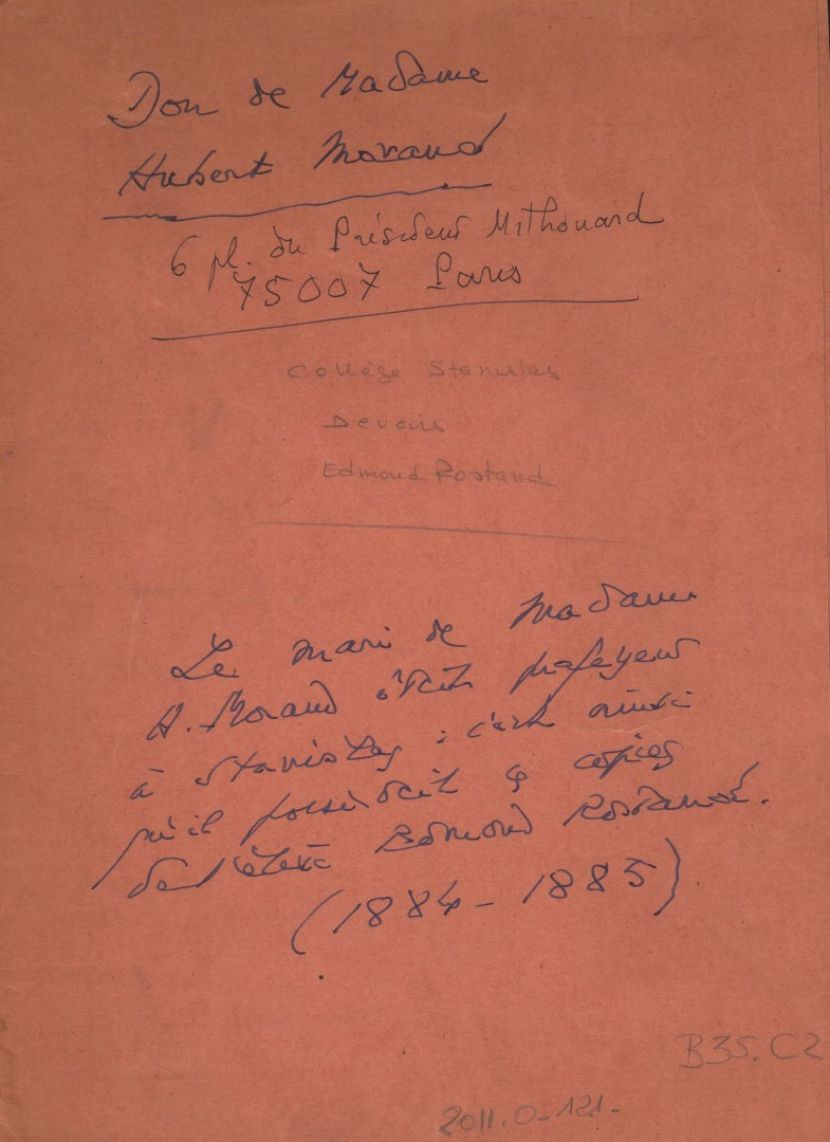 Don de Madame
Hubert Morand
6 pl. du Président Mithouard
75007 Paris
Collège Stanislas
Devoirs
Edmond Rostand
Le mari de Madame
H. Morand était professeur
à Stanislas : c'est ainsi
qu'il possédait les copies
de l'élève Edmond Rostand.
(1884-1885)
B35.C2
2011.0-121-